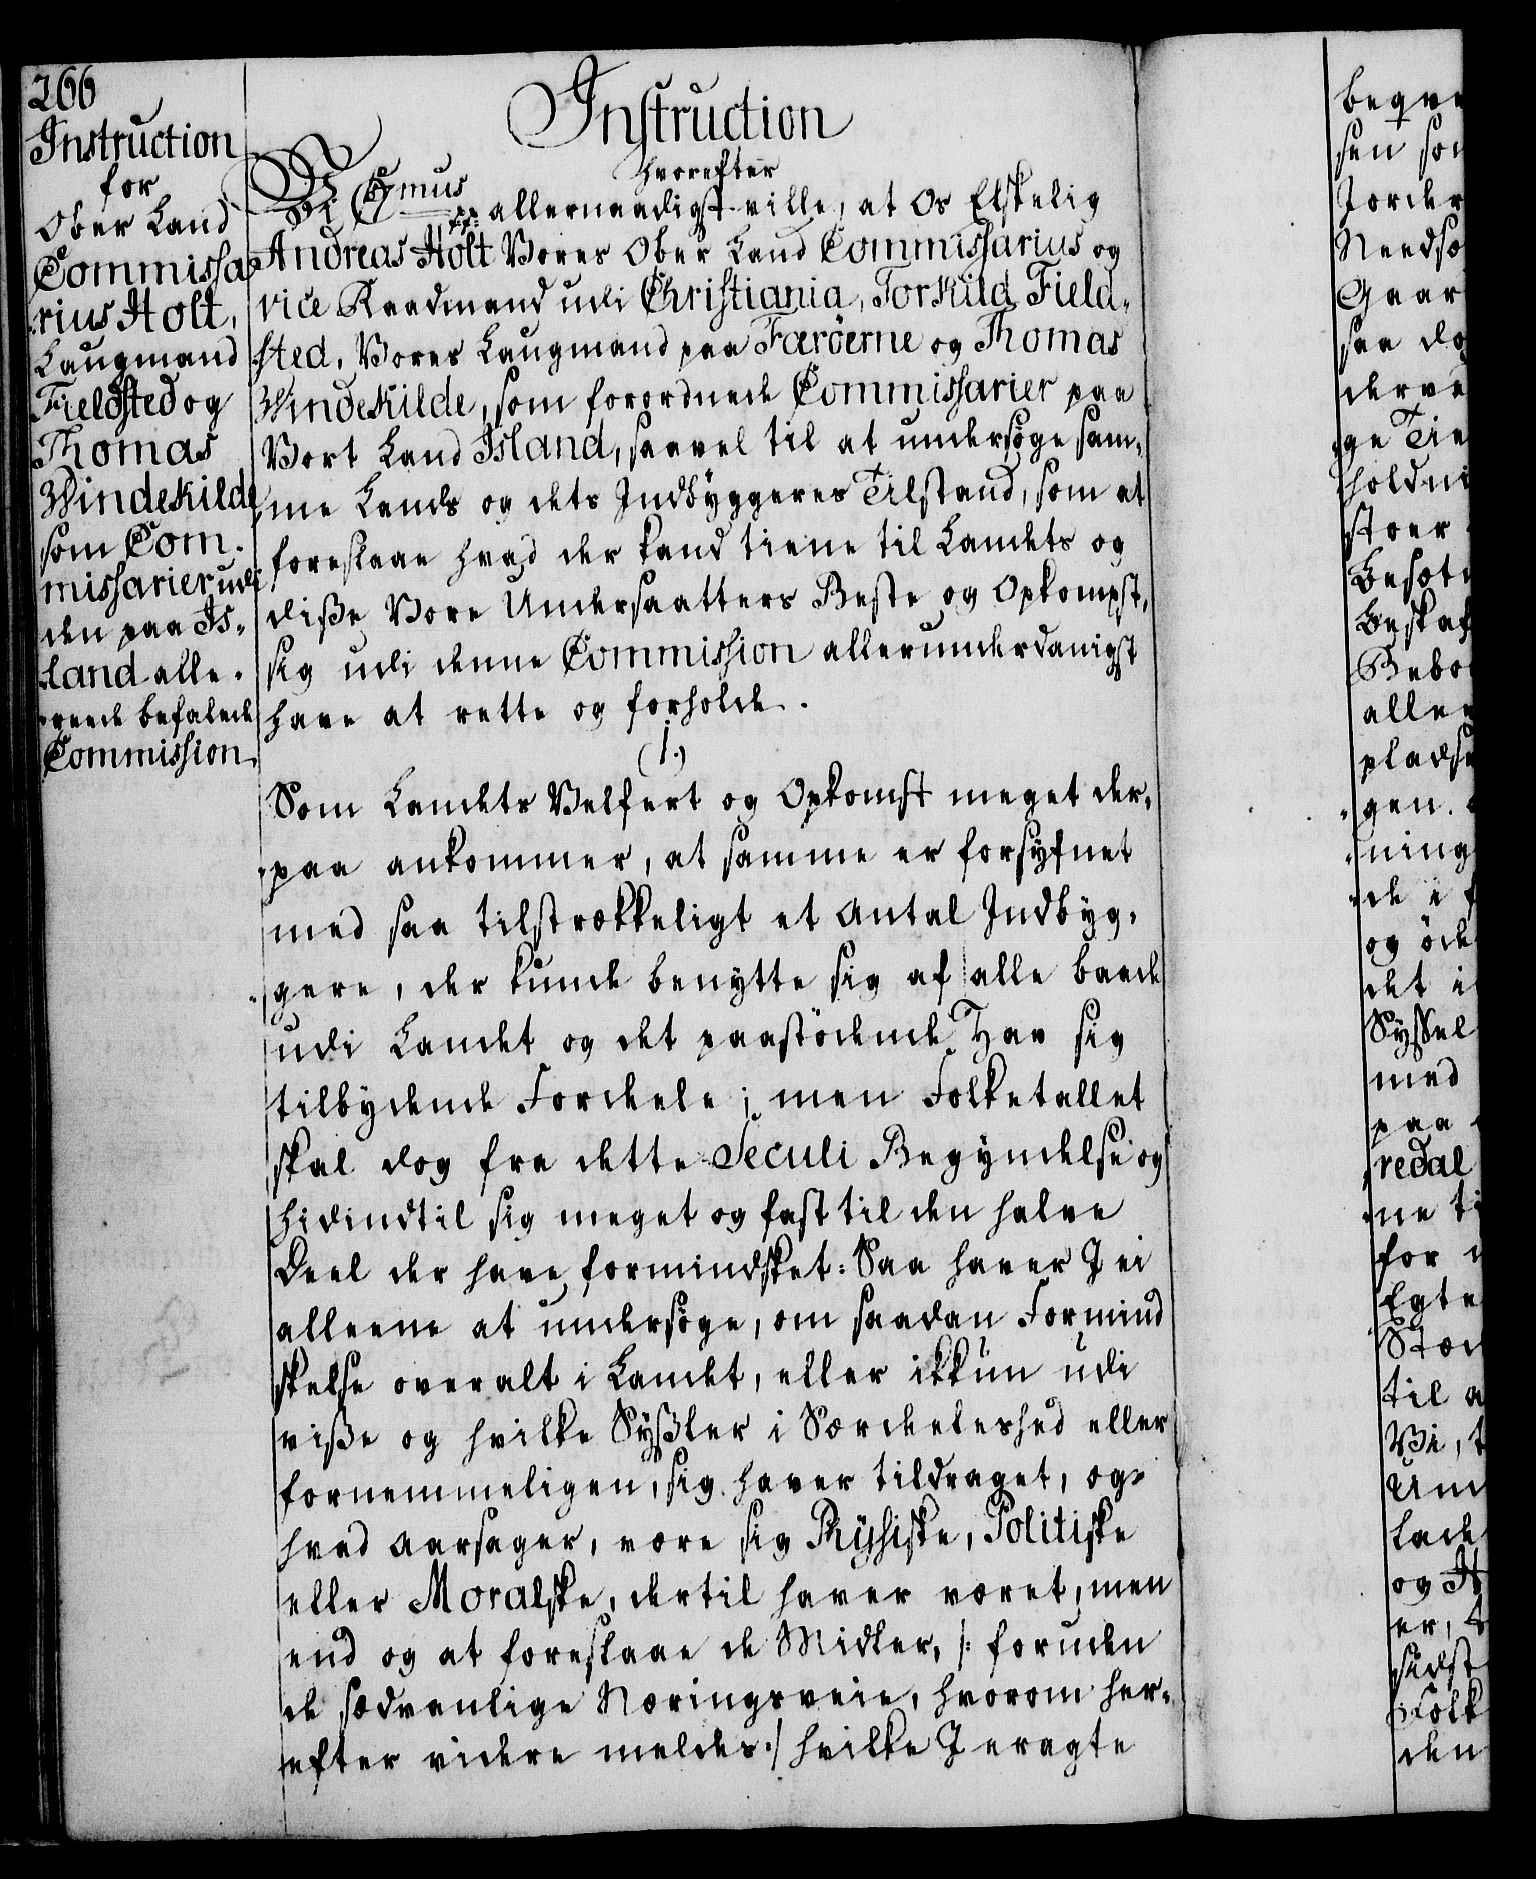 266
Instruction
for
Ober Land
Commissa
rius Holt,
Laugmand
Fieldsted og
Thomas
Windekilde
som Com-
missarier udi
den paa Is-
land alle-
reede befalede
Commission.
Instruction
hvorefter
Vi C 7mus pp: allernaadigst ville, at Os Elskelig
Andreas Holt Vores Ober Land Commissarius og
vice Raadmand udi Christiania, Torkild Field-
sted, Vores Laugmand paa Færöerne og Thomas
Windekilde, som forordnede Commissarier paa
Vort Land Island, saavel til at undersøge sam-
me Lands og dets Indbyggeres Tilstand, som at
foreslaae hvad der kand tiene til Landets og
diße Vore Undersaatters Beste og Opkompst,
sig udi denne Commission allerunderdanigst
have at rette og forholde.
(1.)
Som Landets Velfert og Opkomst meget der-
paa ankommer, at samme er forsyfnet
med saa tilstrækkeligt et Antal Indbyg-
gere, der kunde benytte sig af alle baade
udi Landet og det paastödende Hav sig
tilbydende Fordeele; men Folketallet
skal dog fra dette Seculi Begyndelse og
hidindtil sig meget og fast til den halve
Deel der have formindsket: Saa haver I ei
alleene at undersøge, om saadan Formind
skelse overalt i Landet, eller ikkun udi
viße og hvilke Sÿßler i Særdeleshed eller
fornemmeligen, sig haver tildraget, og
hvad Aarsager, være sig Phÿsiske, Politiske
eller Moralske, dertil haver været, men
end og at foreslaae de Midler, /: foruden
de sædvanlige Næringsveie, hvorom her-
efter videre meldes :/ hvilke I eragte
beqve
sen som
Jorder
Needsæ
Gaar
saa do
derve
ge Tie
holdni
stoer
Besæt
Beskaf
Bebo
aller
pladse
gen.
ning
de i
og öde
det i
Syssel
med
paa
redal
ne ti
for
Egte
Stær
til a
Vi, t
Um
lade
og H
er,
sidst
Folk
den